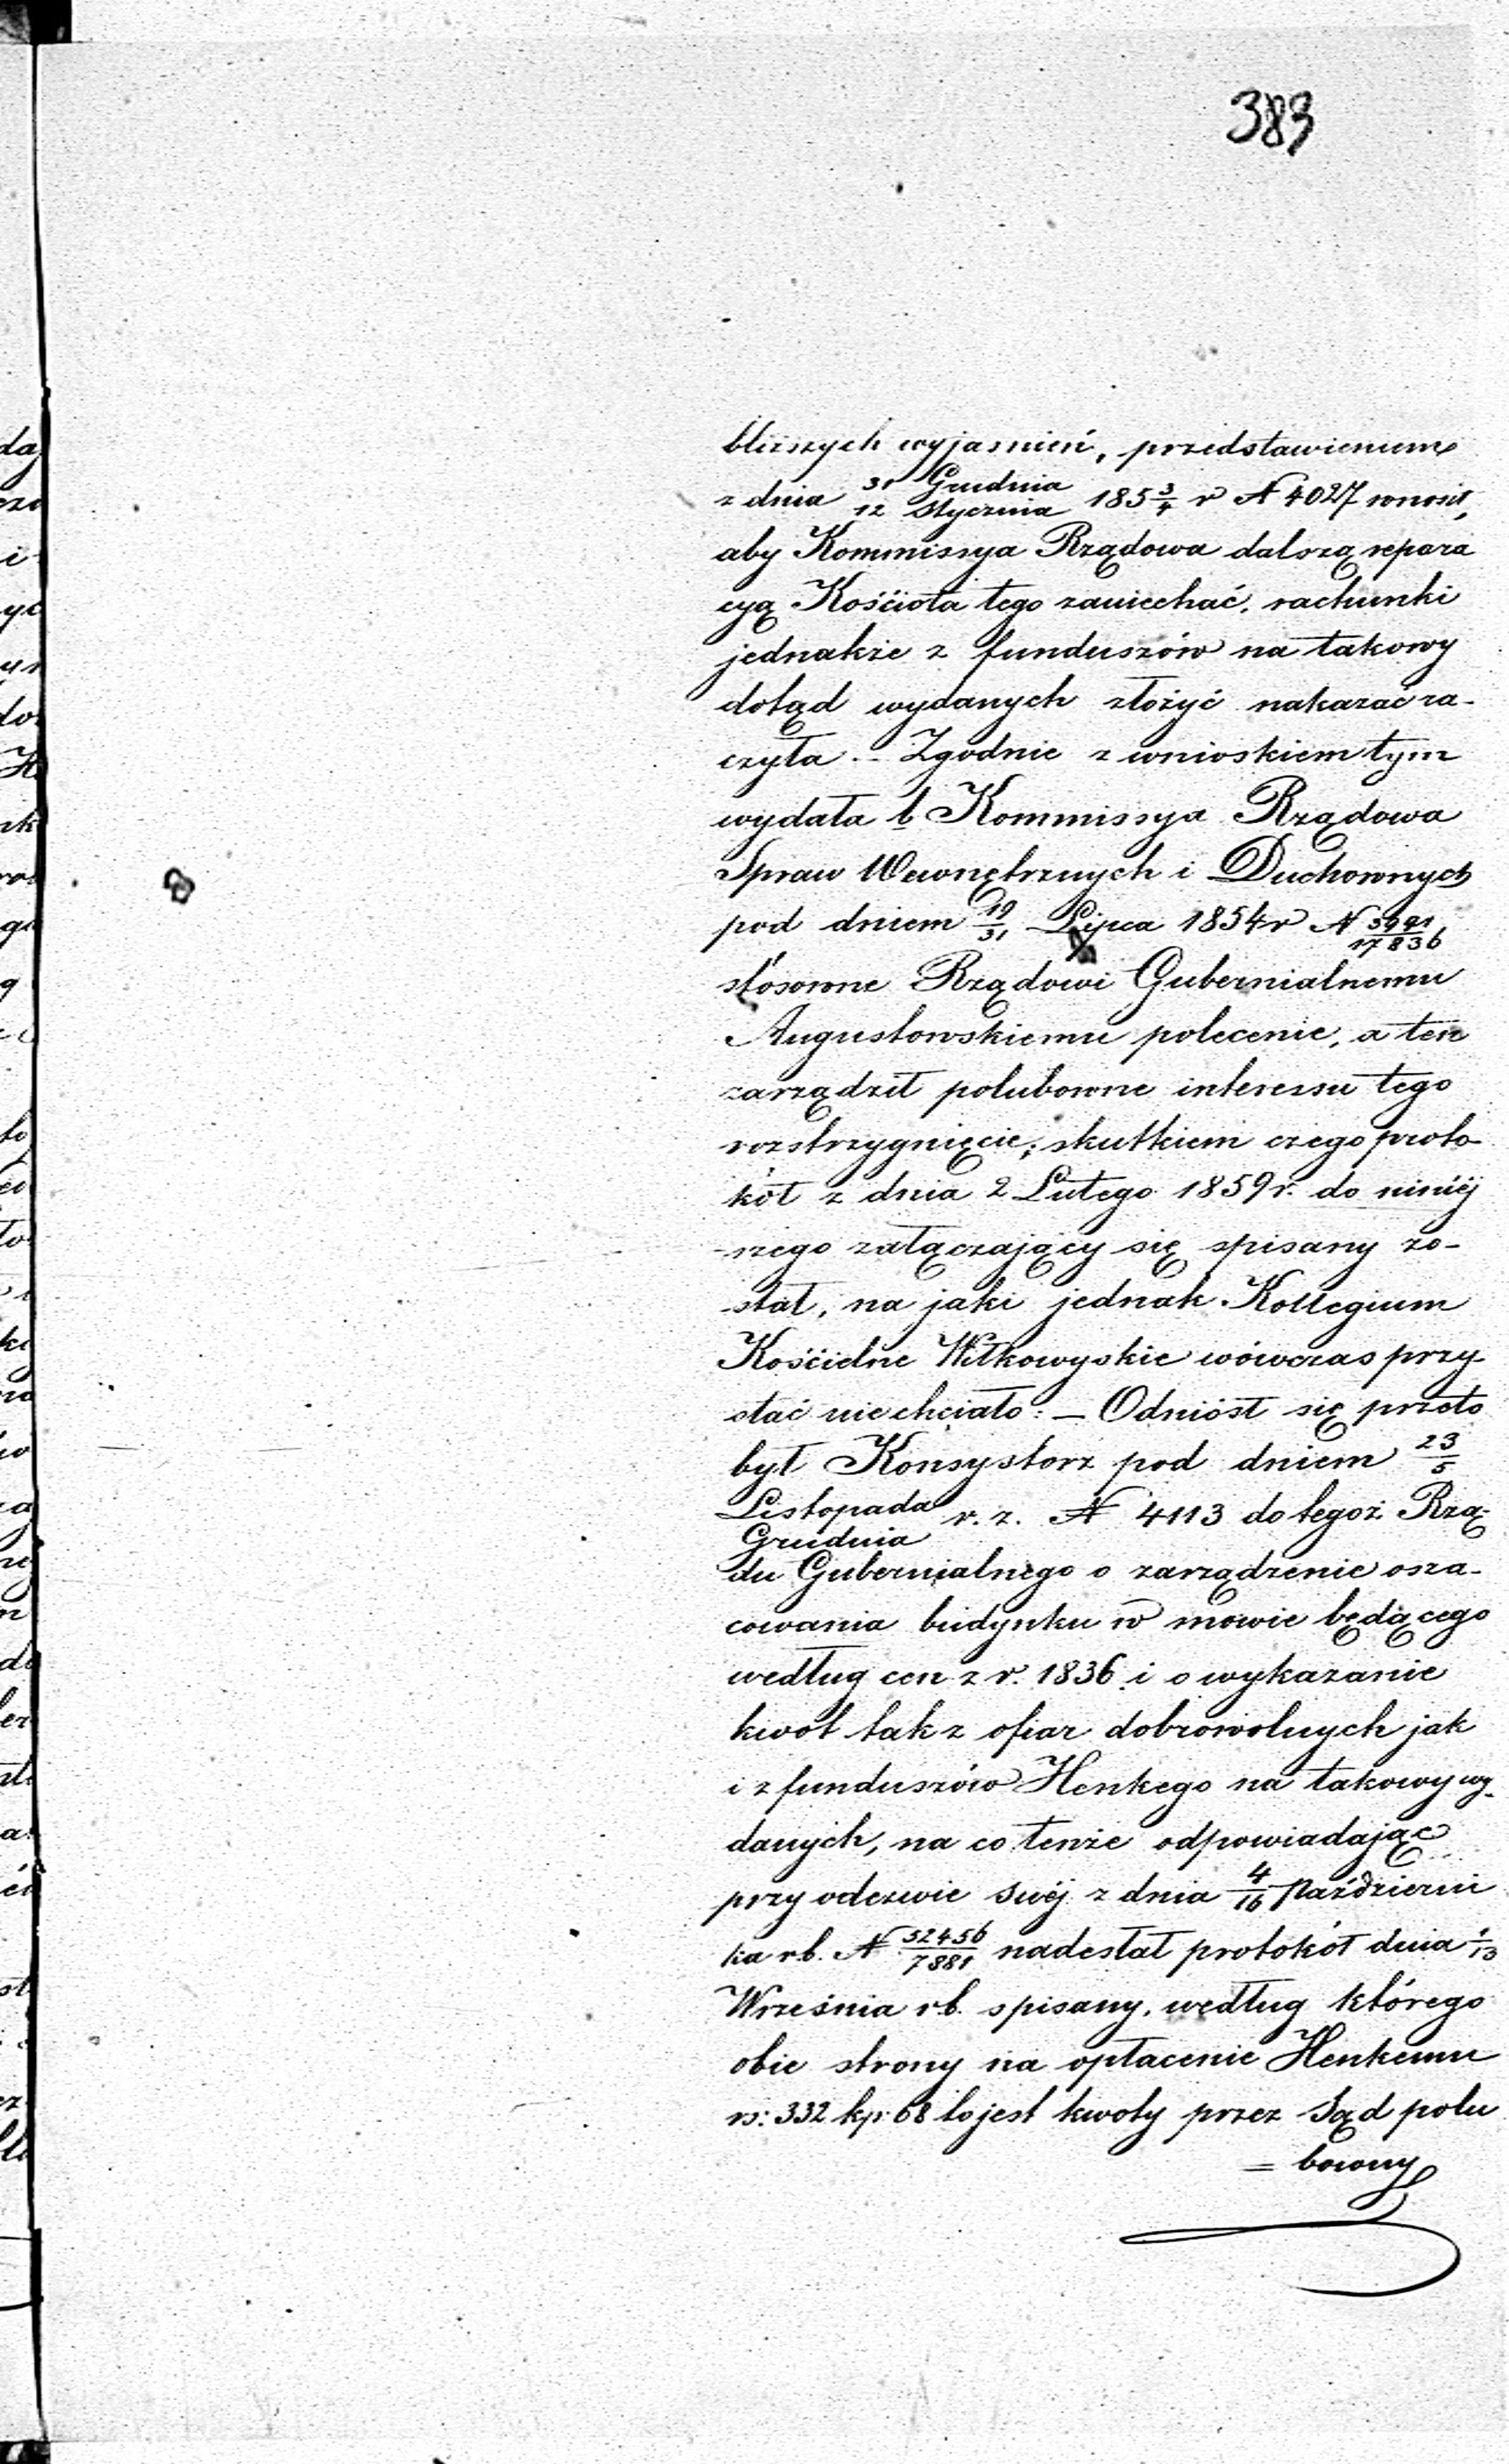 383
bliższych wyjaśnień, przedstawieniem
z dnia 31 Grudnia / 12 Stycznia 185 3/4 r N 4027 wnosił,
aby Kommissya Rządowa dalszą repara
cyą Kościoła tego zaniechać, rachunki
jednakże z funduszów na takowy
dotąd wydanych złożyć nakazać ra-
czyła.- Zgodnie z wnioskiem tym
wydała b Kommissya Rządowa
Spraw Wewnętrznych i Duchownych
pod dniem 19/31 Lipca 1854 r N /17836
stósowne Rządowi Gubernialnemu
Augustowskiemu polecenie, a ten
zarządził polubowne interessu tego
rozstrzygnięcie; skutkiem czego proto-
kół z dnia 2 Lutego 1859 r. do niniéj
-szego załączający się spisany zo-
-stał, na jaki jednak Kollegium
Kościelne Wiłkowyskie wówczas przy-
stać nie chciało: – Odniósł się przeto
był Konsystorz pod dniem 23/5
Listopada / Grudnia r. z. N 4113 do tegoż Rzą-
du Gubernialnego o zarządzenie osza-
cowania budynku w mowie będącego
według cen z r. 1836 i o wykazanie
kwot tak z ofiar dobrowolnych jak
i z funduszów Henkego na takowy wy-
danych, na co tenże odpowiadając
przy odezwie swéj z dnia 4/16 Październi
ka rb. N 52456/7881 nadesłał protokół dnia 1/13
Września rb. spisany, według którego
obie strony na opłacenie Henkemu
rs: 332 kp: 68 to jest kwoty przez Sąd polu
= bowny